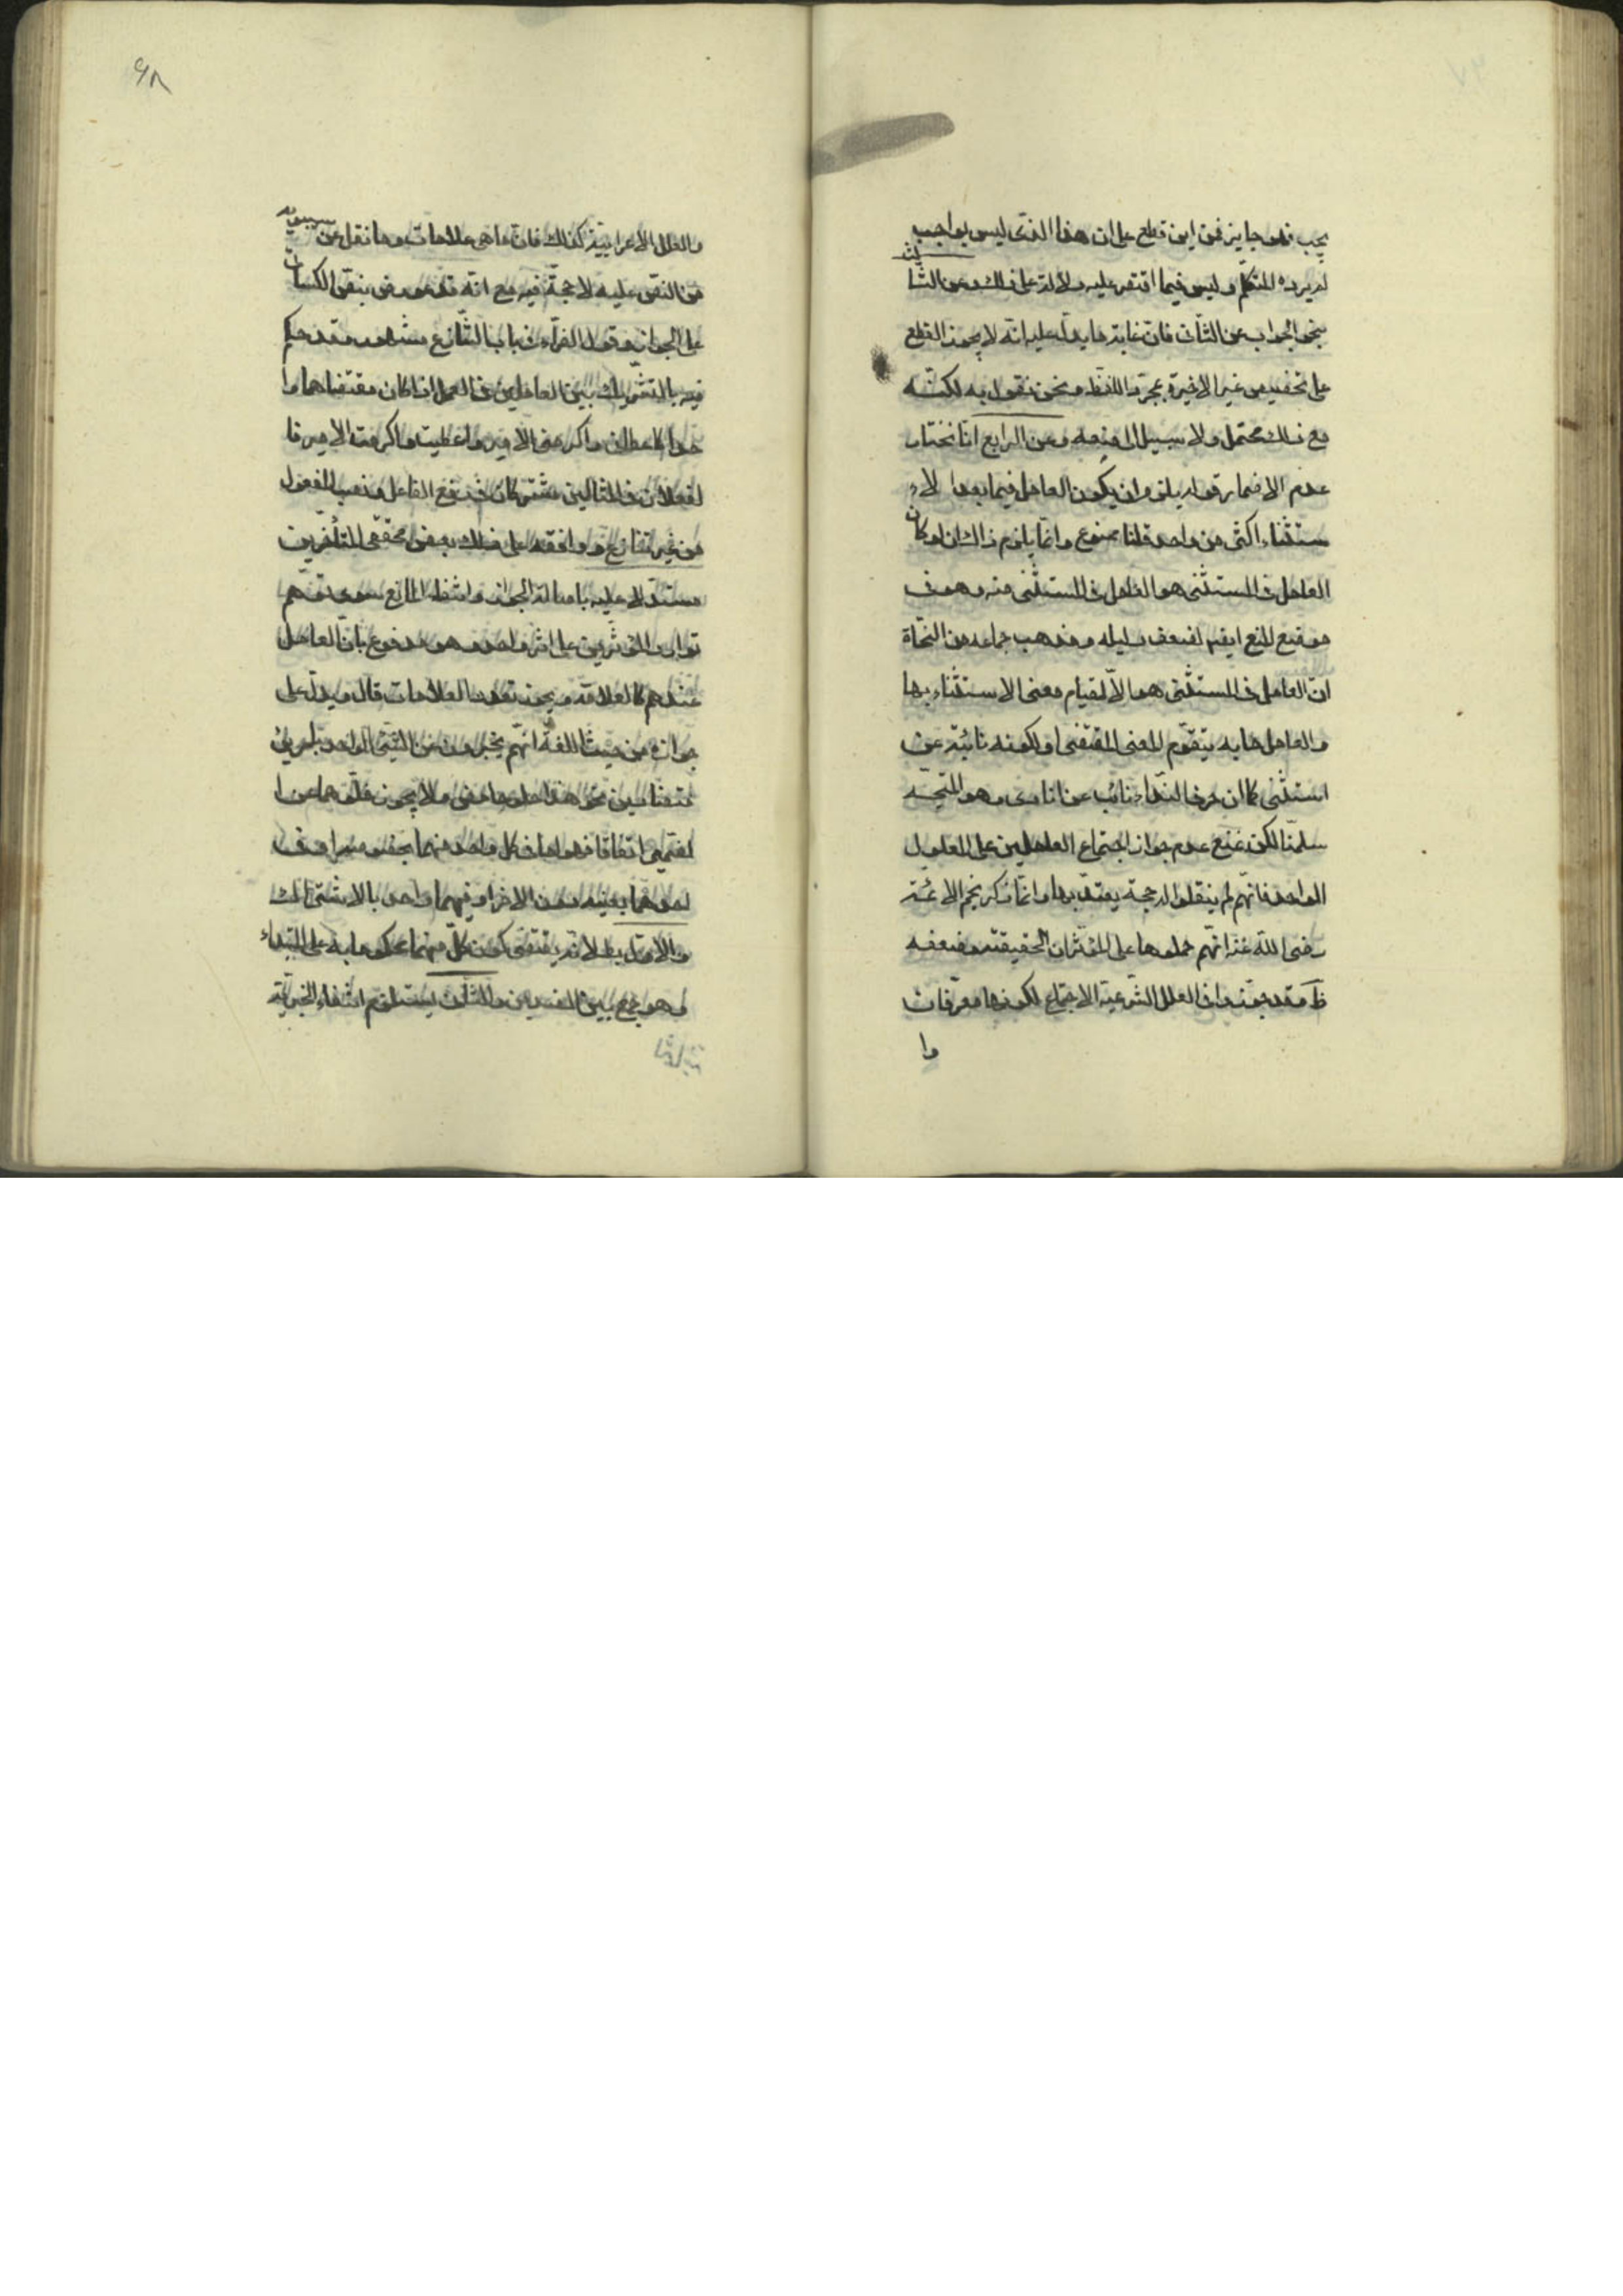 يجب فهو جايز فمن اين قطع على ان هذا الذى ليس بواجب
لم يرده المتكلم وليس فيما اقتصر عليه دلالة على ذلك وعن الثا
لث
بنحو الجواب عن الثانى فان غاية ما يدل عليه انه لا يجوز القطع
على تخصيص غير الاخيرة بمجرد اللفظ ونحن نقول به لكنه
مع ذلك محتمل ولا سبيل الى منعه وعن الرابع انا نختار
عدم الاضمار قوله يلزم ان يكون العامل فيما بعد الا
ستثناء اكثر من واحد قلنا ممنوع وانما يلزم ذلك ان لو كان
العامل فى المستثنى هو العامل فى المستثنى منه وهو فى
موضع المنع ايضا لضعف دليله ومذهب جماعة من النحاة
ان العامل فى المستثنى هو الا لقيام معنى الاستثناء بها
والعامل ما به يتقوم المعنى المقتضى ولكونه نائبة عن
استثنى كما ان حرف النداء نائب عن انادى وهو المتجه
سلمنا لكن نمنع عدم جواز اجتماع العاملين على المعمول
الواحد فانهم لم ينقلوا له حجة يعتد بها وانما ذكر نجم الائمة
رضى الله عنه انهم حملوها على المؤثرات الحقيقية وضعفه
ظ وقد جوزوا فى العلل الشرعية الاجتماع لكونها معرفات
وا
٦٨
والعلل الاعرابية كذلك فانما هى علامات وما نقل عن سيبويه
من النص عليه لا حجة فيه مع انه قد عورض بنص الكسائى
على الجواز وقول الفراء فى باب التنازع مشهور وقد حكم
فيه بالتشريك بين العاملين فى العمل اذا كان مقتضاهما وا
حدا كاعطانى واكرمنى الامير واعطيت واكرمت الامير فا
لفعلان فى المثالين مشتركان فى رفع الفاعل ونصب المفعول
من غير تنازع ووافقه على ذلك بعض محققى المتأخرين
مستدلا عليه باصالة الجواز وانتفاء المانع سوى توهم
توارد المؤثرين على اثر واحد وهو مدفوع بان العامل
عندهم كالعلامة ويجوز تعدد العلامات قال ويدل على
جوازه من حيث اللغة انهم يخبرون عن الشئ الواحد بامرين
متضادين نحو هذا حلو حامض ولا يجوز خلوهما عن ا
لضمير اتفاقا فهو اما فى كل واحد منهما بخصوصه او فى
احدهما بعينه دون الاخر او فيهما واحد بالاشتراك
والاول بط لانه يقتضى كون كل منهما محكوما به على المبتداء
وهو جمع بين الضدين والثانى يستلزم انتفاء الخبرية